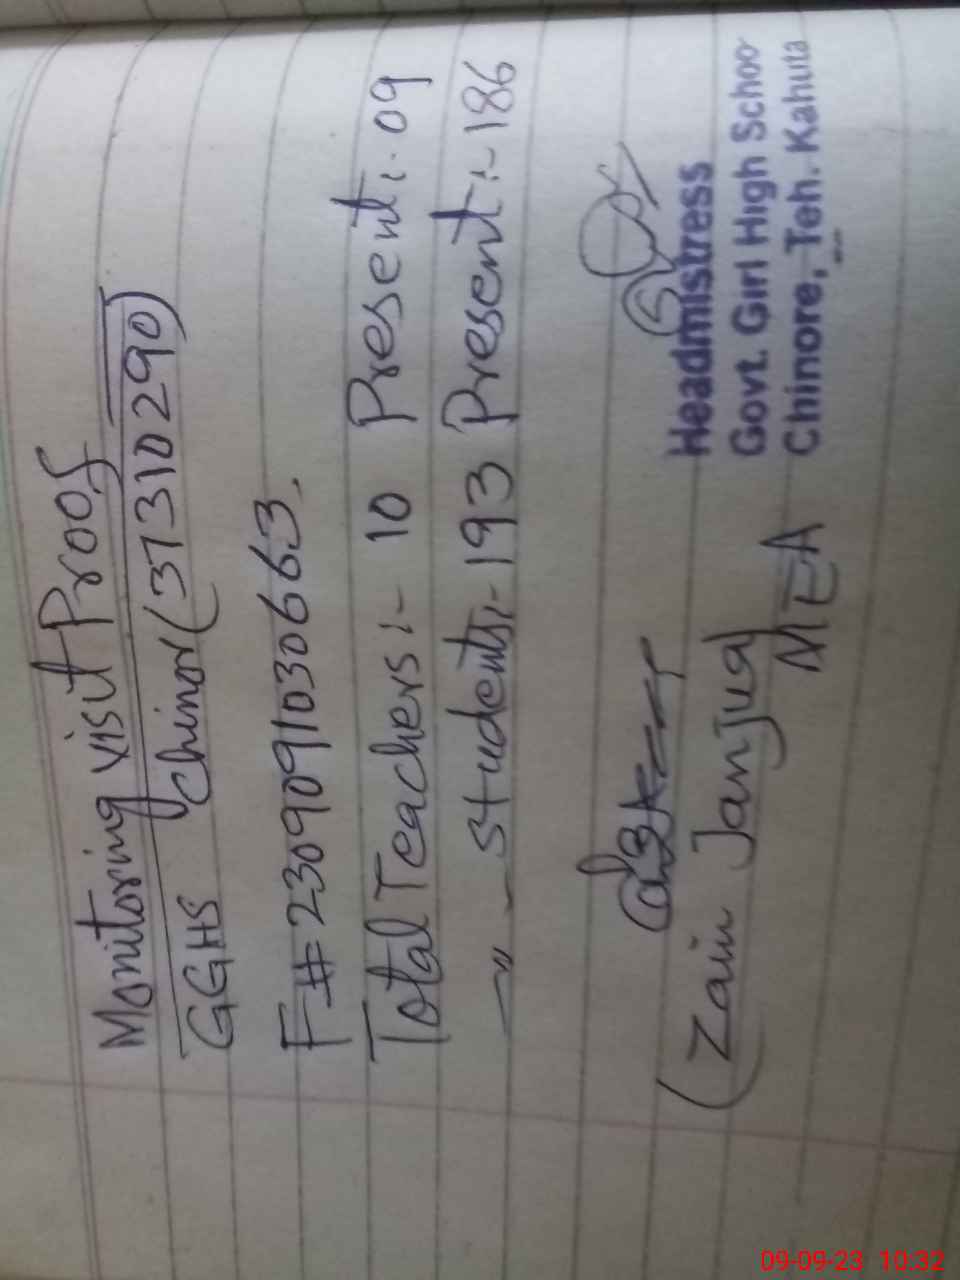 Monitoring Visit Proof
GGHS Chinor (37310290)
F# 2309091030663.
Total Teachers:- 10 Present:- 09
-"- Students:- 193 Present:- 186
(Zain Janjua)
MEA
Headmistress
Govt. Girl High Schoo
Chinore, Teh. Kahuta
09-09-23 10:32